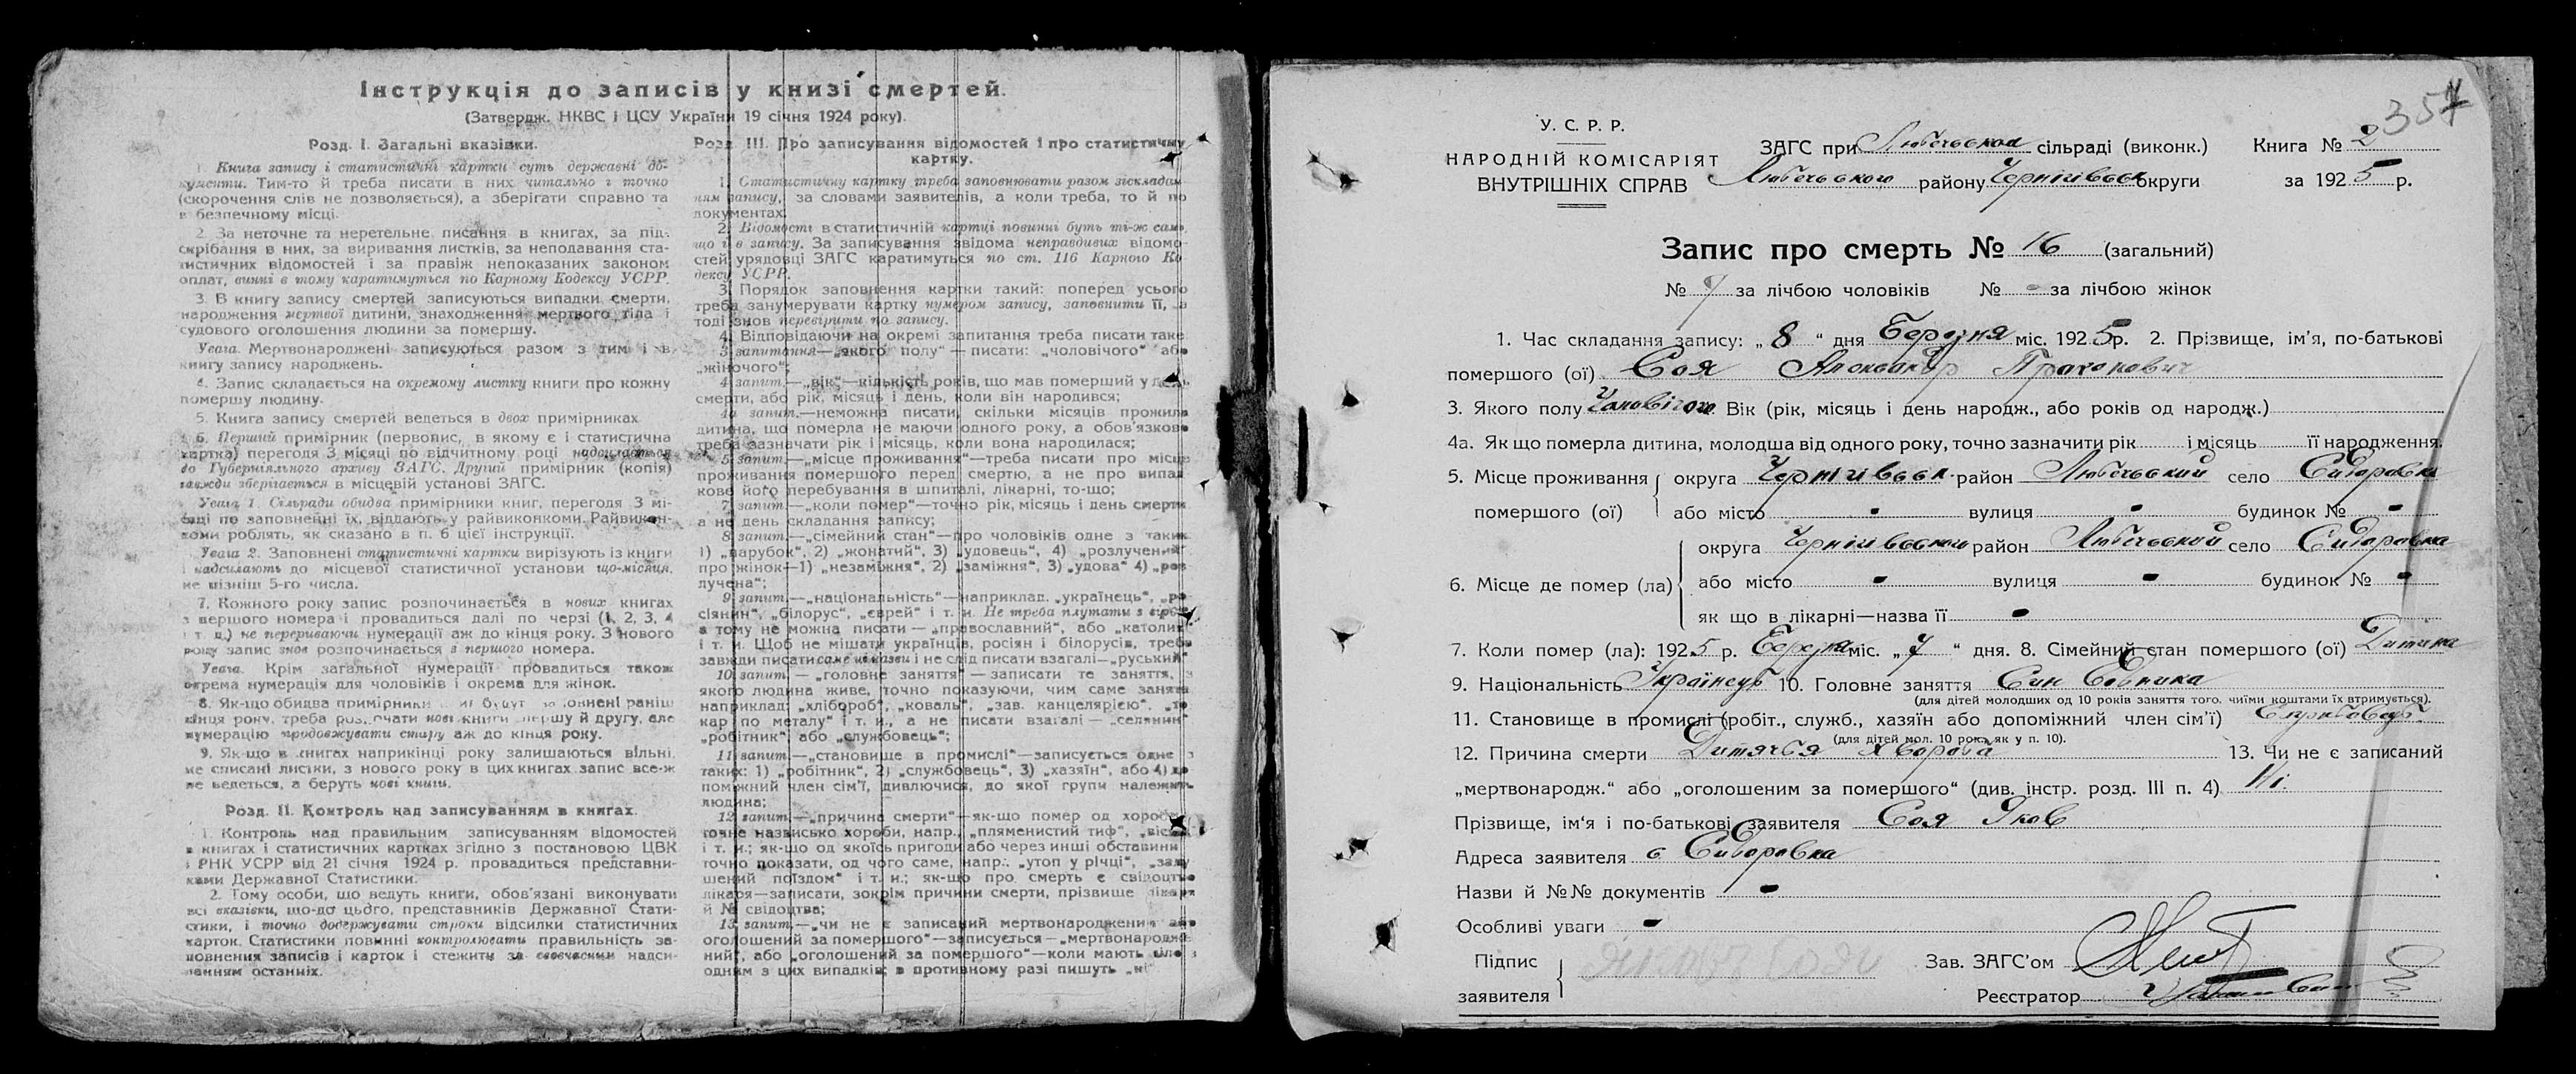 Інструкція до записів у книзі смертей.
(Затвердж. НКВС і ЦСУ України 19 січня 1924 року).
Розд. І. Загальні вказівки.
1. Книга запису і статистичні картки суть державні до-
кументи. Тим-то й треба писати в них читально і точно
(скорочення слів не дозволяється), а зберігати справно та
в безпечному місці.
2. За неточне та неретельне писання в книгах, за під-
скрібання в них, за виривання листків, за неподавання ста-
тистичних відомостей і за правіж непоказаних законом
оплат, винні в тому каратимуться по Карному Кодексу УСРР.
3. В книгу запису смертей записуються випадки смерти,
народження мертвої дитини, знаходження мертвого тіла і
судового оголошення людини за помершу.
Увага. Мертвонароджені записуються разом з тим і в
книгу запису народжень.
4. Запис складається на окремому листку книги про кожну
помершу людину.
5. Книга запису смертей ведеться в двох примірниках
6. Перший примірник (первопис, в якому є і статистична
картка) перегодя 3 місяці по відчитному році надсилається
до Губерніяльного архиву ЗАГС. Другий примірник (копія)
завжди зберігається в місцевій установі ЗАГС.
Увага 1. Сільради обидва примірники книг, перегодя 3 мі-
сяці по заповненні їх, віддають у райвиконкоми. Райвикон-
коми роблять, як сказано в п. 6 цієї інструкції.
Увага 2. Заповнені статистичні картки вирізують із книги
і надсилають до місцевої статистичної установи що-місяця,
не пізніш 5-го числа.
7. Кожного року запис розпочинається в нових книгах
з першого номера і провадиться далі по черзі (1, 2, 3, 4
і т. д.) не перериваючи нумерації аж до кінця року. З нового
року запис знов розпочинається з першого номера.
Увага. Крім загальної нумерації провадиться також
окрема нумерація для чоловіків і окрема для жінок.
8. Як-що обидва примірники книг будут заповнені раніш
кінця року, треба розпочати нові книги першу й другу, але
нумерацію продовжувати стару аж до кінця року.
9. Як-що в книгах наприкінці року залишаються вільні,
не списані листки, з нового року в цих книгах запис все-ж
не ведеться, а беруть нові книги.
Розд. II. Контроль над записуванням в книгах.
1. Контроль над правильним записуванням відомостей
в книгах і статистичних картках згідно з постановою ЦВК
і РНК УСРР від 21 січня 1924 р. провадиться представни-
ками Державної Статистики.
2. Тому особи, що ведуть книги, обов'язані виконувати
всі вказівки, що-до цього, представників Державної Стати-
стики, і точно додержувати строки відсилки статистичних
карток. Статистики повинні контролювати правильність за-
повнення записів і карток і стежити за своєчасним надси-
ланням останніх.
Розд. III. Про записування відомостей і про статистичну
картку.
1. Статистичну картку треба заповнювати разом зіскладан-
ням запису, за словами заявителів, а коли треба, то й по
документах.
2. Відомості в статистичній картці повинні буть ті-ж самі,
що і в запису. За записування звідома неправдивих відомо-
стей урядовці ЗАГС каратимуться по ст. 116 Карного Ко
дексу УСРР.
3. Порядок заповнення картки такий: поперед усього
треба занумерувати картку нумером запису, заповнити її, а
тоді знов перевірити по запису.
4. Відповідаючи на окремі запитання треба писати таке
3 запитання—„якого полу“ — писати: „чоловічого“ або
„жіночого“;
4 запит.—„вік“—кількість років, що мав померший у день
смерти, або рік, місяць і день, коли він народився;
4а запит.—неможна писати, скільки місяців прожила
дитина, що померла не маючи одного року, а обов'язково
треба зазначати рік і місяць, коли вона народилася;
5 запит.—„місце проживання“—треба писати про місце
проживання помершого перед смертю, а не про випад
кове його перебування в шпиталі, лікарні, то-що;
7 запит.—„коли помер“—точно рік, місяць і день смерти
а не день складання запису;
8 запит.—„сімейний стан“—про чоловіків одне з таких
1) „парубок“, 2) „жонатий“, 3) „удовець“, 4) „розлучений“
про жінок—1) „незаміжня“, 2) „заміжня“, 3) „удова“ 4) „роз
лучена“;
9 запит.—„національність“—наприклад. „українець“, „ро-
сіянин“, „білорус“, „єврей“ і т. и. Не треба плутати з вірою
а тому не можна писати — „православний“, або „католик“
і т. и. Щоб не мішати українців, росіян і білорусів, треба
завжди писати саме ці назви і не слід писати взагалі—„руський“
10 запит. — „головне заняття“ — записати те заняття, з
якого людина живе, точно показуючи, чим саме занята
наприклад: „хлібороб“, „коваль“, „зав. канцелярією“, „то
кар по металу“ і т. и., а не писати взагалі — „селянин“
„робітник“, або „службовець“;
11 запит.—„становище в промислі“—записується одне з
таких: 1) „робітник“, 2) „службовець“, 3) „хазяїн“, або 4) до
поміжний член сім'ї, дивлючися, до якої групи належить
людина;
12 запит.—„причина смерти“—як-що помер од хороби
точне назвисько хороби, напр., „пляменистий тиф“, „віспа“
і т. и.; як-що од якоїсь пригоди або через инші обставини
точно показати, од чого саме, напр.: „утоп у річці“, „заду
шений поїздом“ і т. и.; як-що про смерть є свідоцтво
лікаря—записати, зокрім причини смерти, прізвище лікаря
й № свідоцтва;
13 запит.—„чи не є записаний мертвонародженим або
оголошений за помершого“—записується—„мертвонародже-
ний“, або „оголошений за помершого“—коли мають діло з
одним з цих випадків; в противному разі пишуть „ні“
357
У. С. Р. Р.
НАРОДНІЙ КОМІСАРІЯТ
ВНУТРІШНІХ СПРАВ
ЗАГС при Любечьской сільраді (виконк.) Книга № 2
Любечьского району Чернігівськ округи за 1925 р.
Запис про смерть № 16 (загальний)
№ 9 за лічбою чоловіків № - за лічбою жінок
1. Час складання запису: „ 8 “ дня Березня міс. 1925 р. 2. Прізвище, ім'я, по-батькові
помершого (ої) Соя Александр
3. Якого полу Чоловічого Вік (рік, місяць і день народж., або років од народж.)
4а. Як що померла дитина, молодша від одного року, точно зазначити рік і місяць її народження.
5. Місце проживання округа Чернігівськ район Любечьский село Сидоровка
помершого (ої) або місто - вулиця - будинок № -
округа Чернігівськой район Любечьский село Сидоровка
6. Місце де помер (ла) або місто - вулиця - будинок № -
як що в лікарні—назва її -
7. Коли помер (ла): 1925 р. Березня міс. „ 7 “ дня. 8. Сімейний стан помершого (ої) Дитина
9. Національність Українець 10. Головне заняття Син
(для дітей молодших од 10 років заняття того, чиїми коштами їх втримується).
11. Становище в промислі (робіт., служб., хазяїн або допоміжний член сім'ї) Службовець
(для дітей мол. 10 рок., як у п. 10).
12. Причина смерти Дитячья хвороба 13. Чи не є записаний
„мертвонародж.“ або „оголошеним за помершого“ (див. інстр. розд. III п. 4) Ні.
Прізвище, ім'я і по-батькові заявителя Соя Яков
Адреса заявителя с Сидоровка
Назви й №№ документів -
Особливі уваги -
Підпис
заявителя
Зав. ЗАГС'ом
Реєстратор